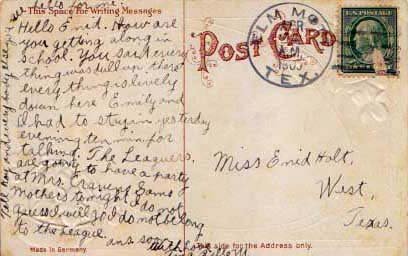 all hello for me.
This Space for Writing Messages
Hello Enid. How are
you getting along in
school. You said every
thing was dull up there
every thing is lively
down here Emily and
I had to stay in yesterday
evening ten min for
talking. The Leaguers,
are going to have a party
at Mrs. Cravens Sams &
Mothers tonight I do not
guess I will go I do not belong
to the League.
ans soon
With love
Tell May and every body
Made in Germany.
POST CARD
ELM MO
APR
A.M.
TEX.
U.S. POSTAGE
Miss Enid Holt,
West,
Texas.
This side for the Address only.